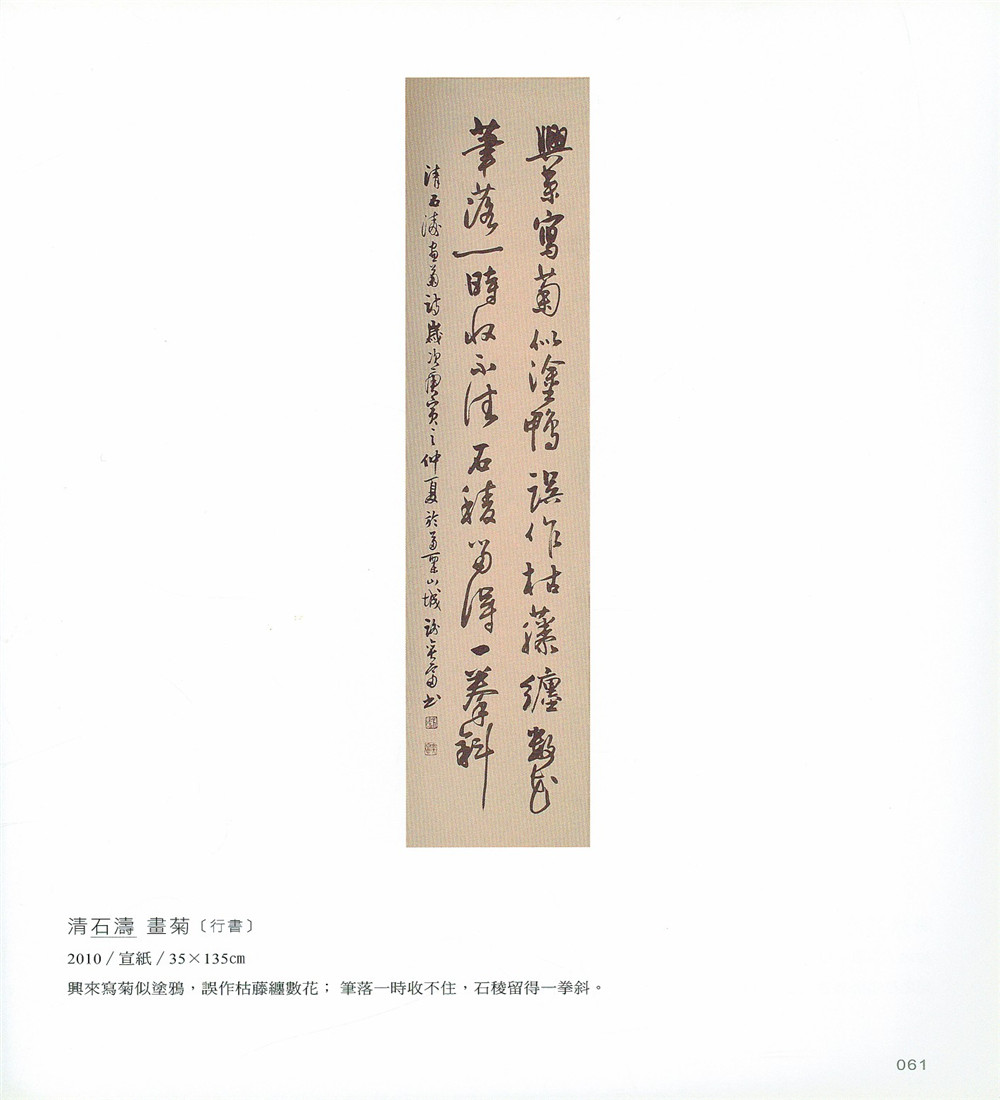 興來寫菊似塗鴨誤作枯藤纏數花
筆落一時收不住石稜留得一拳斜
清石濤畫菊詩歲次庚寅之仲夏於苗栗山城
清石濤 畫菊〔行書〕
2010 / 宣紙 / 35×135㎝
興來寫菊似塗鴉，誤作枯藤纏數花； 筆落一時收不住，石稜留得一拳斜。
061